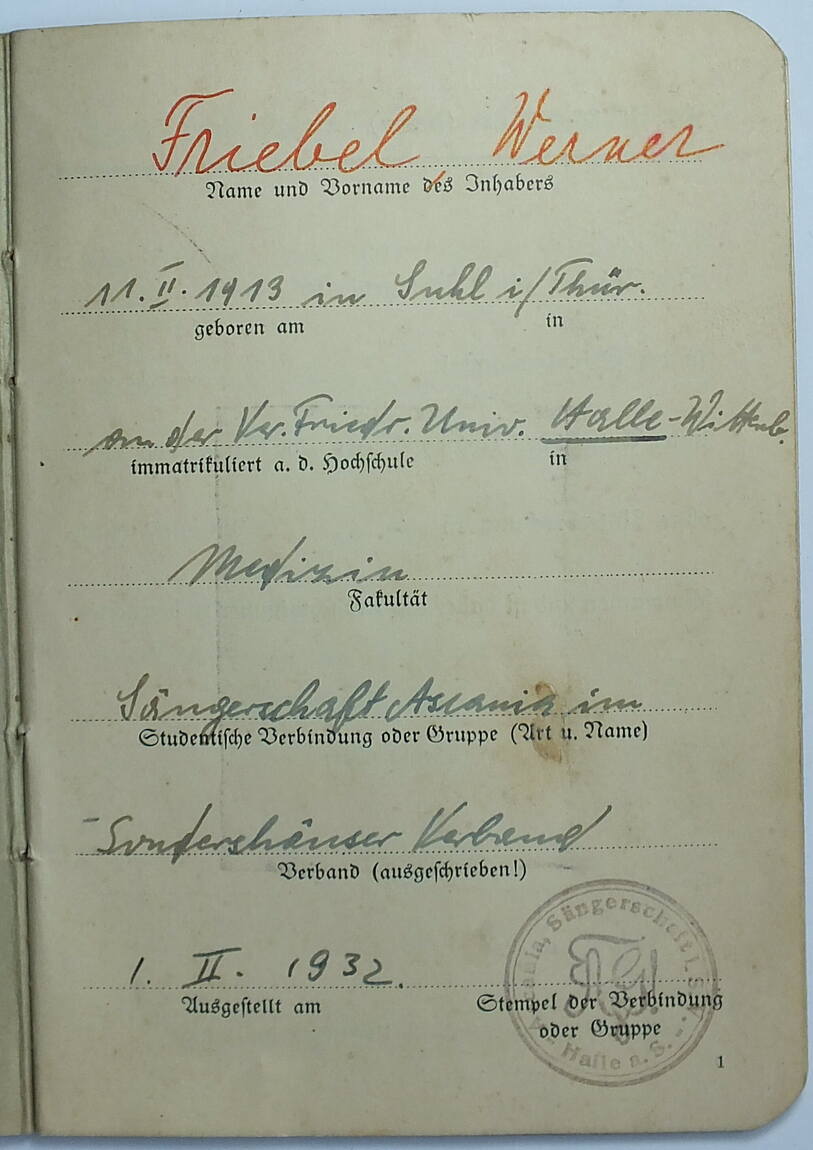 Friebel Werner
Name und Vorname des Inhabers
11. II. 1913 in Suhl i/Thür.
geboren am in
an der Ver. Friedr. Univ. Halle-Wittenb.
immatrikuliert a. d. Hochschule in
Medizin
Fakultät
Sängerschaft Ascania im
Studentische Verbindung oder Gruppe (Art u. Name)
Sondershäuser Verband
Verband (ausgeschrieben!)
1. II. 1932.
Ausgestellt am
Stempel der Verbindung
oder Gruppe
Sängerschaft i. S.
Halle a. S.
1